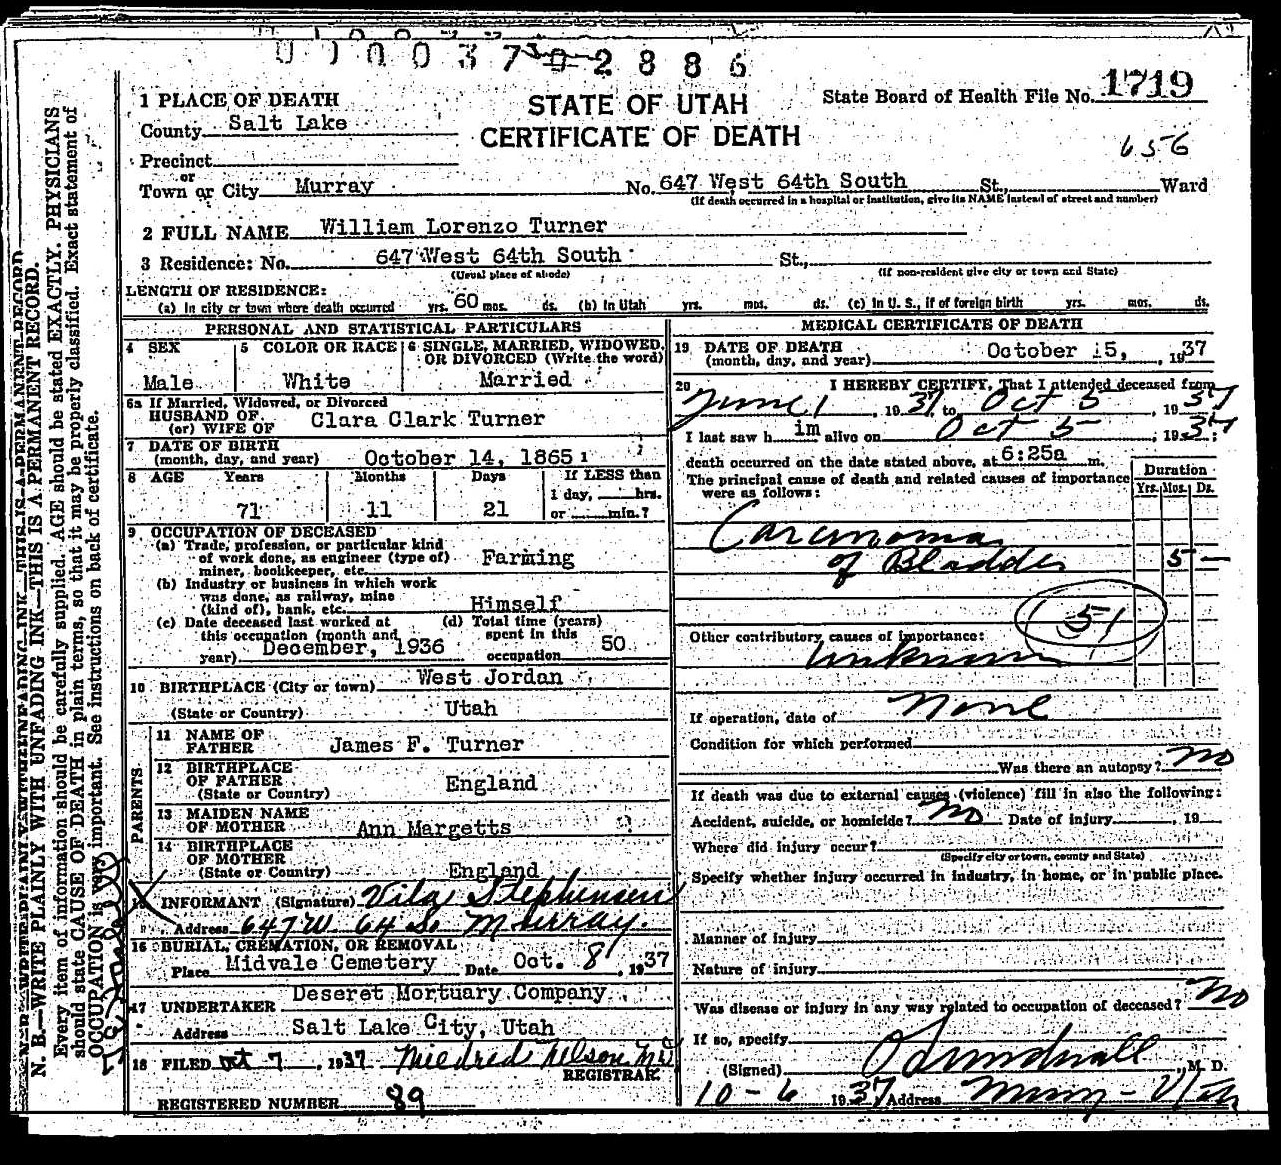 0 0 0 0 3 7 0 2 8 8 6
1 PLACE OF DEATH
STATE OF UTAH
State Board of Health File No. 1719
County Salt Lake
CERTIFICATE OF DEATH
656
Precinct
or
Town or City Murray No. 647 West 64th South St., Ward
(If death occurred in a hospital or institution, give its NAME instead of street and number)
2 FULL NAME William Lorenzo Turner
3 Residence: No. 647 West 64th South St.,
(Usual place of abode) (If non-resident give city or town and State)
LENGTH OF RESIDENCE:
(a) In city or town where death occurred yrs. 60 mos. ds. (b) In Utah yrs. mos. ds. (c) In U. S., if of foreign birth yrs. mos. ds.
PERSONAL AND STATISTICAL PARTICULARS
4 SEX 5 COLOR OR RACE 6 SINGLE, MARRIED, WIDOWED,
OR DIVORCED (Write the word)
Male White Married
6a If Married, Widowed, or Divorced
HUSBAND OF
(or) WIFE OF Clara Clark Turner
7 DATE OF BIRTH
(month, day, and year) October 14, 1865
8 AGE Years Months Days If LESS than
1 day, hrs.
71 11 21 or min.?
9 OCCUPATION OF DECEASED
(a) Trade, profession, or particular kind
of work done, as engineer (type of)
miner, bookkeeper, etc. Farming
(b) Industry or business in which work
was done, as railway, mine
(kind of), bank, etc. Himself
(c) Date deceased last worked at
this occupation (month and
year) December, 1936
(d) Total time (years)
spent in this
occupation 50
10 BIRTHPLACE (City or town) West Jordan
(State or Country) Utah
PARENTS
11 NAME OF
FATHER James F. Turner
12 BIRTHPLACE
OF FATHER
(State or Country) England
13 MAIDEN NAME
OF MOTHER Ann Margetts
14 BIRTHPLACE
OF MOTHER
(State or Country) England
INFORMANT (Signature) Vila Stephensen
Address 647 W 64 So Murray.
16 BURIAL, CREMATION, OR REMOVAL
Place Midvale Cemetery Date Oct. 8, 1937
17 UNDERTAKER Deseret Mortuary Company
Address Salt Lake City, Utah
18 FILED Oct 7, 1937 Mildred Nelson
REGISTRAR.
REGISTERED NUMBER 89
MEDICAL CERTIFICATE OF DEATH
19 DATE OF DEATH
(month, day, and year) October 5, 1937
20 I HEREBY CERTIFY, That I attended deceased from
June 1, 1937 to Oct 5, 1937
I last saw him alive on Oct 5, 1937;
death occurred on the date stated above, at 6:25a m.
The principal cause of death and related causes of importance
were as follows:
Duration
Yrs. Mos. Ds.
Carcinoma
of Bladder 5 —
51
Other contributory causes of importance:
Unknown
If operation, date of None
Condition for which performed
Was there an autopsy? No
If death was due to external causes (violence) fill in also the following:
Accident, suicide, or homicide? No Date of injury, 19
Where did injury occur?
(Specify city or town, county and State)
Specify whether injury occurred in industry, in home, or in public place.
Manner of injury
Nature of injury
Was disease or injury in any way related to occupation of deceased? No
If so, specify
(Signed) M. D.
10 - 6 1937 Address Murray - Utah
N. B.—WRITE PLAINLY WITH UNFADING INK—THIS IS A PERMANENT RECORD.
Every item of information should be carefully supplied. AGE should be stated EXACTLY. PHYSICIANS
should state CAUSE OF DEATH in plain terms, so that it may be properly classified. Exact statement of
OCCUPATION is very important. See instructions on back of certificate.